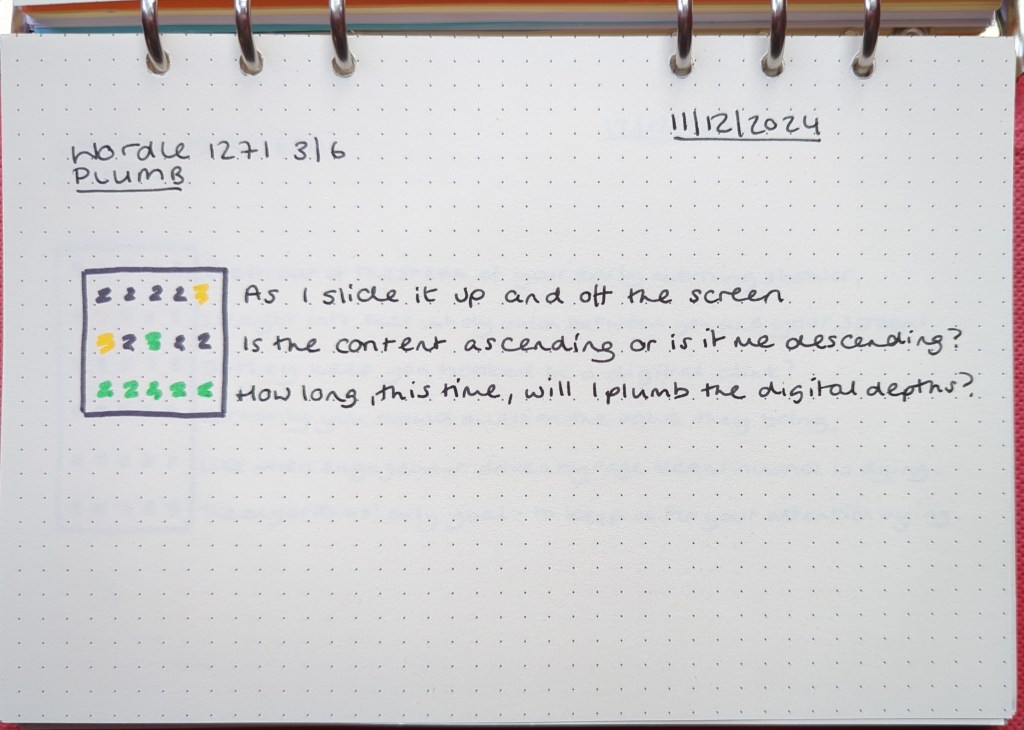 11/12/2024
Wordle 1271 3/6
PLUMB
As I slide it up and off the screen
Is the content ascending or is it me descending?
How long, this time, will I plumb the digital depths?